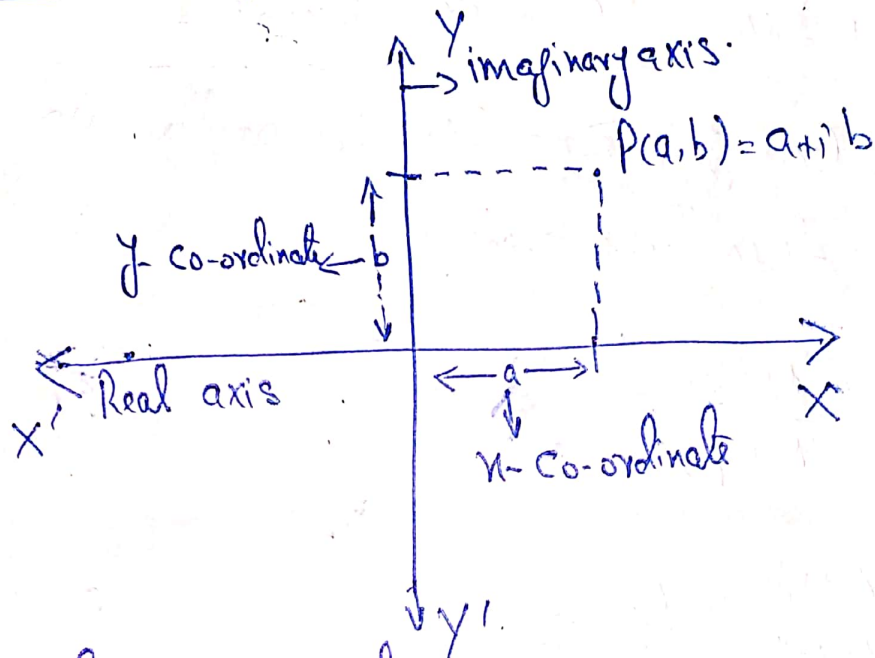 Y
imaginary axis.
P(a,b) = a+ib
y- co-ordinate
b
Real axis
a
X
X'
x- co-ordinate
Y'